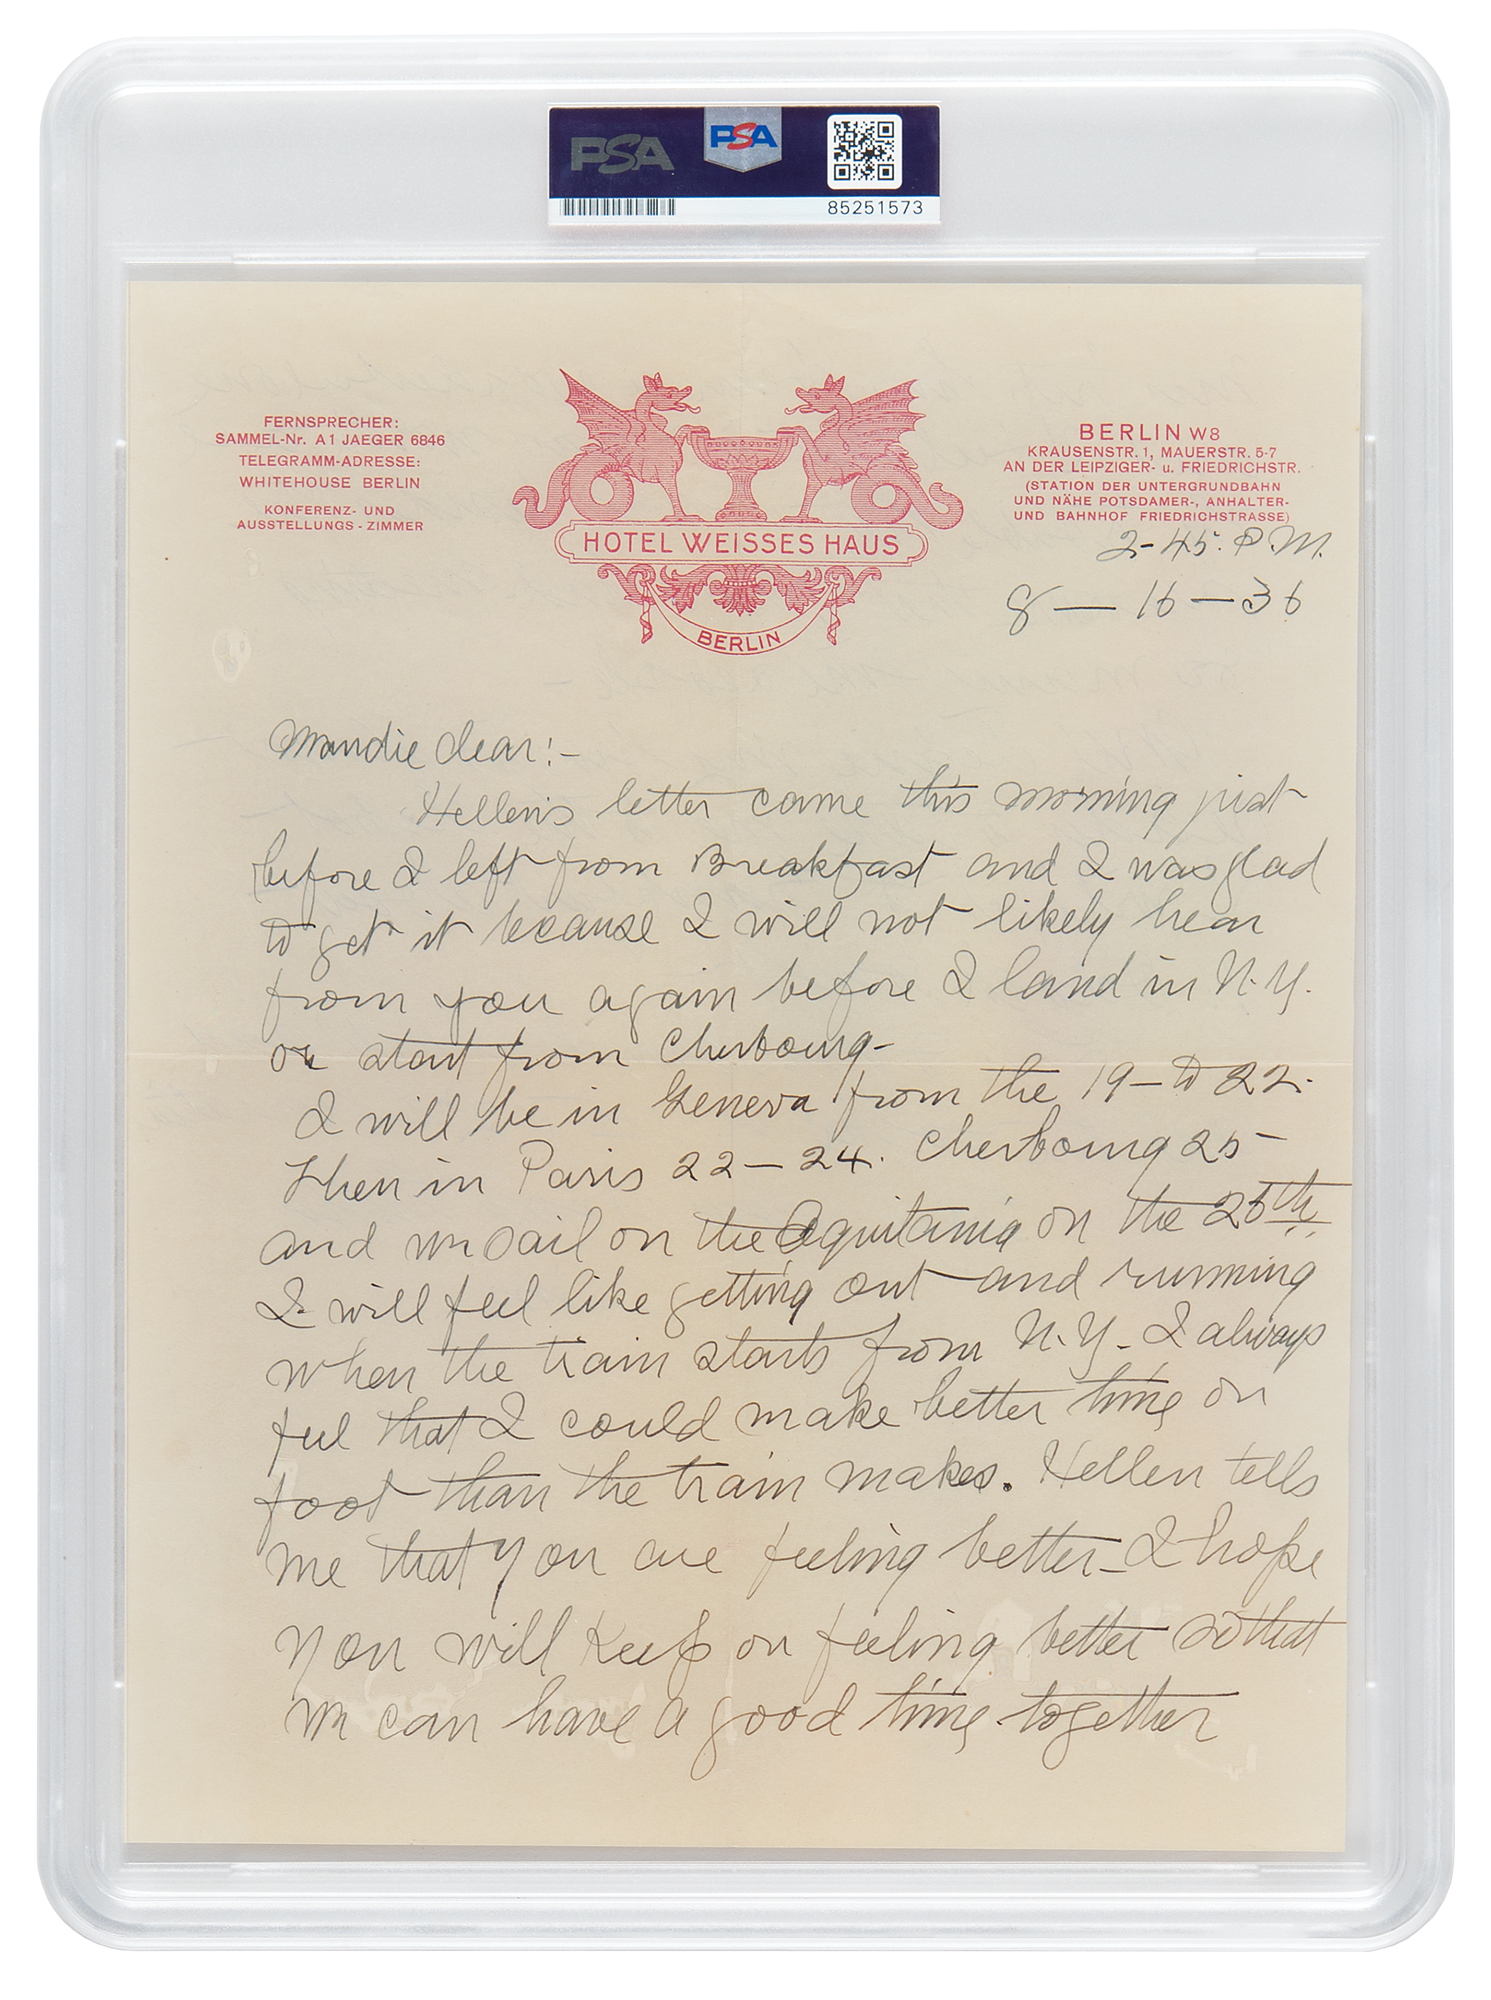 PSA
PSA
85251573
FERNSPRECHER:
SAMMEL-Nr. A1 JAEGER 6846
TELEGRAMM-ADRESSE:
WHITEHOUSE BERLIN
KONFERENZ- UND
AUSSTELLUNGS-ZIMMER
HOTEL WEISSES HAUS
BERLIN
BERLIN W8
KRAUSENSTR. 1, MAUERSTR. 5-7
AN DER LEIPZIGER- u. FRIEDRICHSTR.
(STATION DER UNTERGRUNDBAHN
UND NÄHE POTSDAMER-, ANHALTER-
UND BAHNHOF FRIEDRICHSTRASSE)
2-45. P.M.
8 — 16 — 36
Mandie dear:-
Hellen's letter came this morning just
before I left from Breakfast and I was glad
to get it because I will not likely hear
from you again before I land in N.Y.
or start from Cherbourg-
I will be in Geneva from the 19 - to 22.
Then in Paris 22 — 24. Cherbourg 25-
and we sail on the Aquitania on the 25th
I will feel like getting out and running
when the train starts from N.Y. - I always
feel that I could make better time on
foot than the train makes. Hellen tells
me that you are feeling better - I hope
you will keep on feeling better so that
we can have a good time together